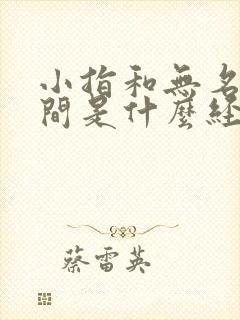 小指和無名
間是什麼経
蔡雷英